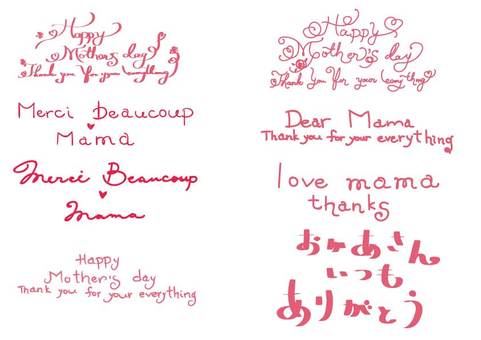 Happy
Mother's day
Thank you for your everything
Merci Beaucoup
Mama
Merci Beaucoup
Mama
Happy
Mother's day
Thank you for your everything
Happy
Mother's day
Thank you for your everything
Dear Mama
Thank you for your everything
love mama
thanks
おかあさん
いつも
ありがとう